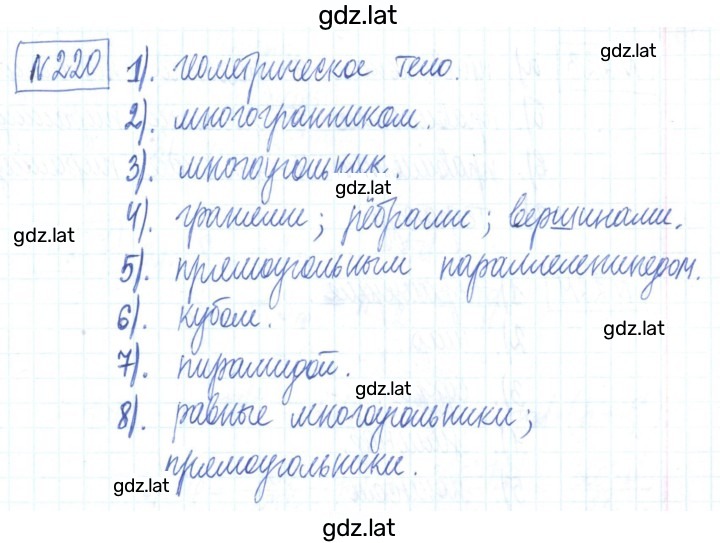 gdz.lat
№220 1). геометрическое тело.
gdz.lat
2). многогранником.
3). многоугольник.
gdz.lat
4). гранями; рёбрами; вершинами.
gdz.lat
5). прямоугольным параллелепипедом.
6). кубом.
gdz.lat
7). пирамидой.
gdz.lat
8). равные многоугольники;
прямоугольники.
gdz.lat
gdz.lat